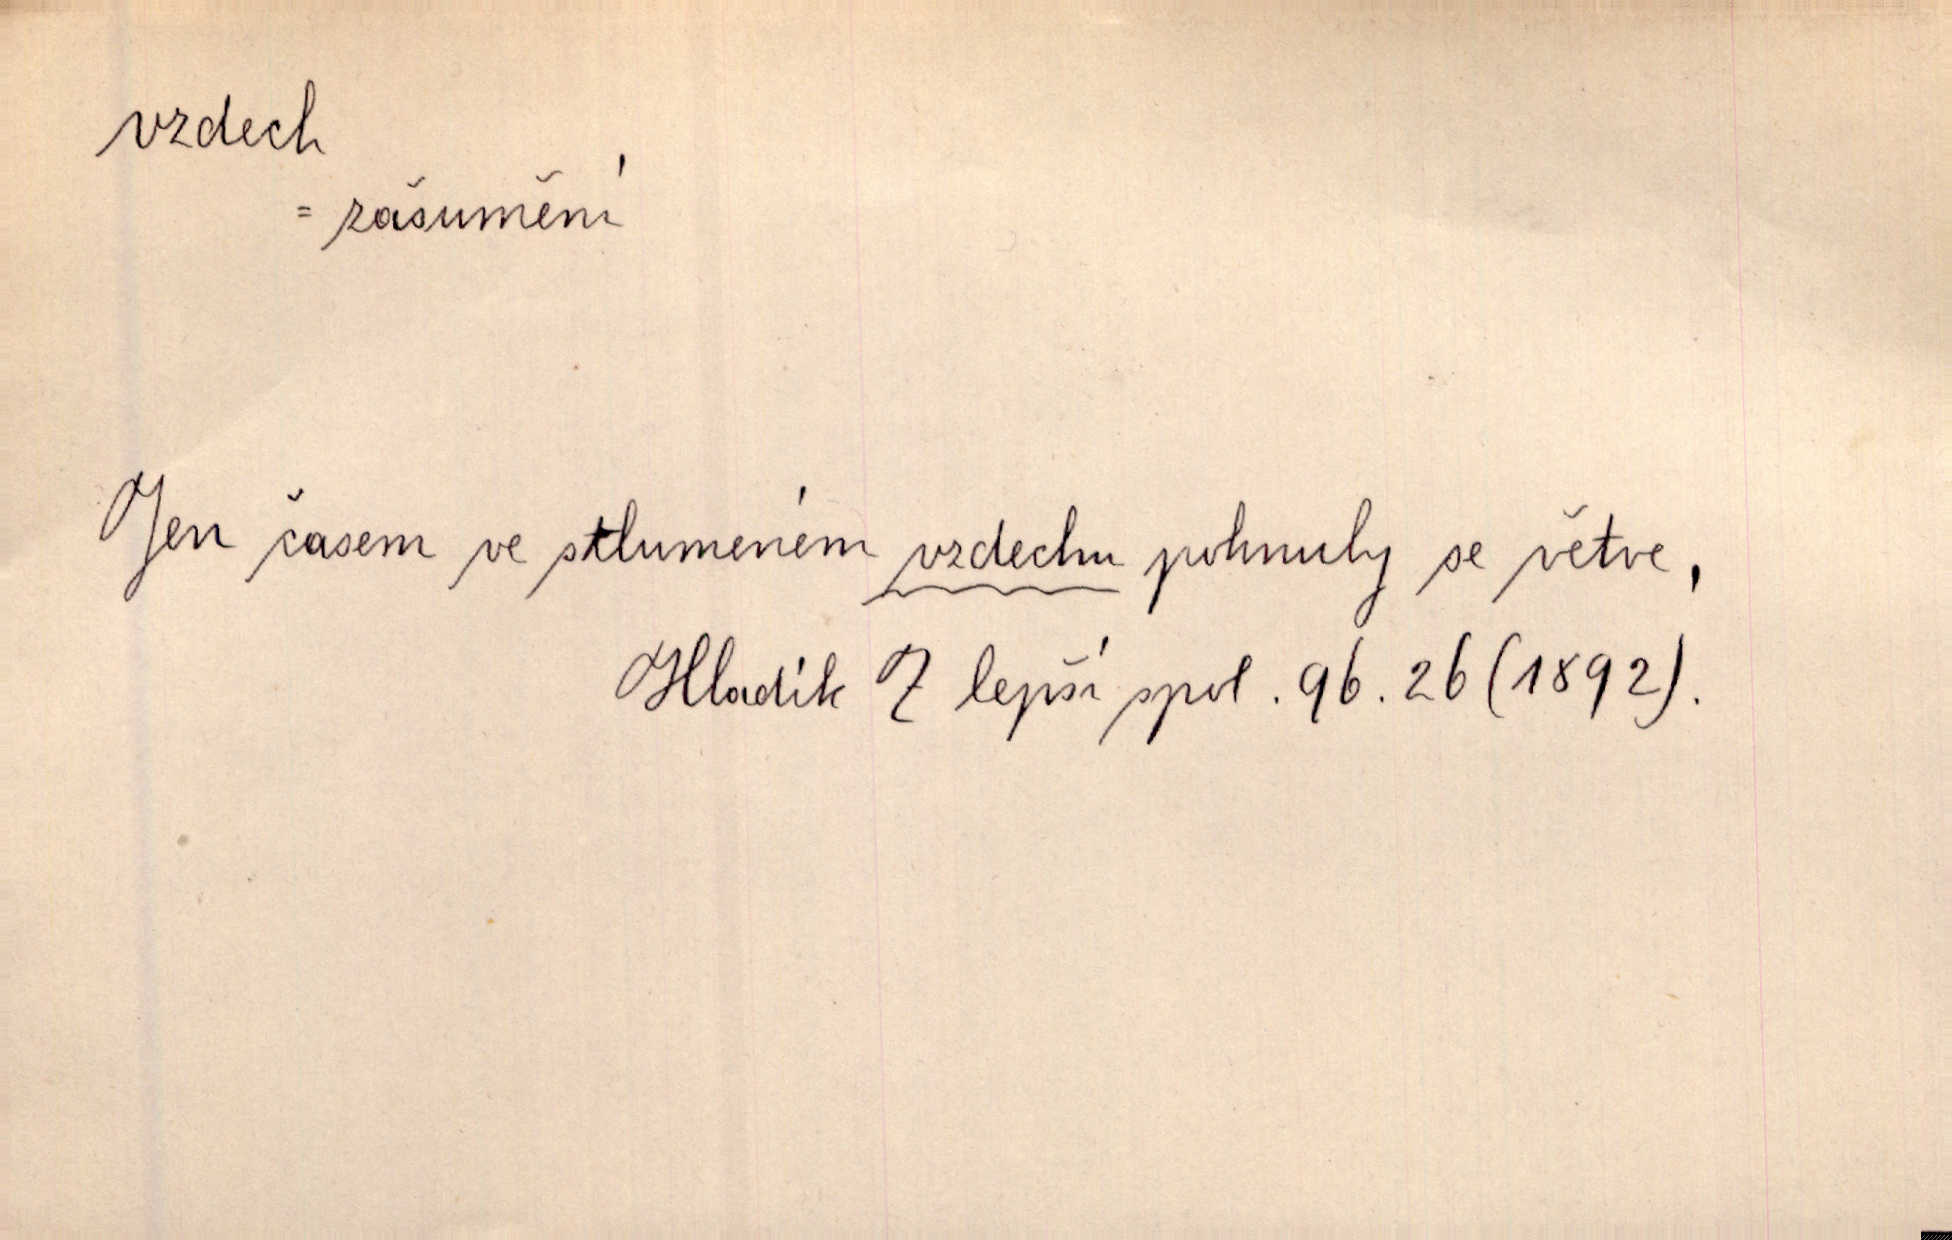 vzdech
= zašumění
Jen časem ve stlumeném vzdechu pohnuly se větve,
Hladík Z lepší spol. 96.26 (1892).